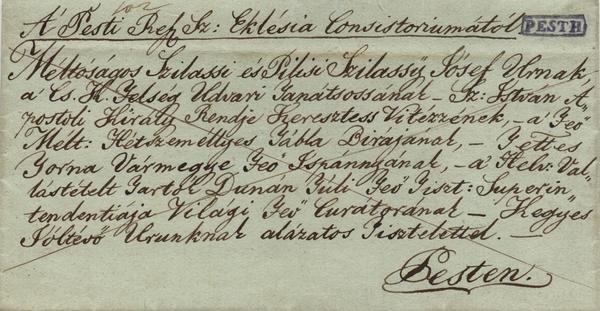 102
A' Pesti Ref. Sz: Eklésia Consistoriumától PESTH
Méltóságos Szilassi és Pilisi Szilassÿ Jósef Urnak,
a Cs. K. Felség Udvari Tanátsossának – Sz: István A-
postoli Király Rendje Keresztess Vitézzének, – a' Feő
Mélt: Hétszeméllyes Tábla Birájának, – Tettes
Torna Vármegye Feő Ispánnyának, – a' Helv: Val-
lástételt Tartó Dunán Túli Feő Tiszt: Superin-
tendentiája Világi Feő Curátorának – Kegyes
Jóltevő Urunknak alázatos Tisztelettel.
Pesten.